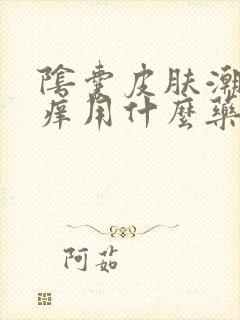 陰囊皮肤潮
痒用什麼藥
阿茹